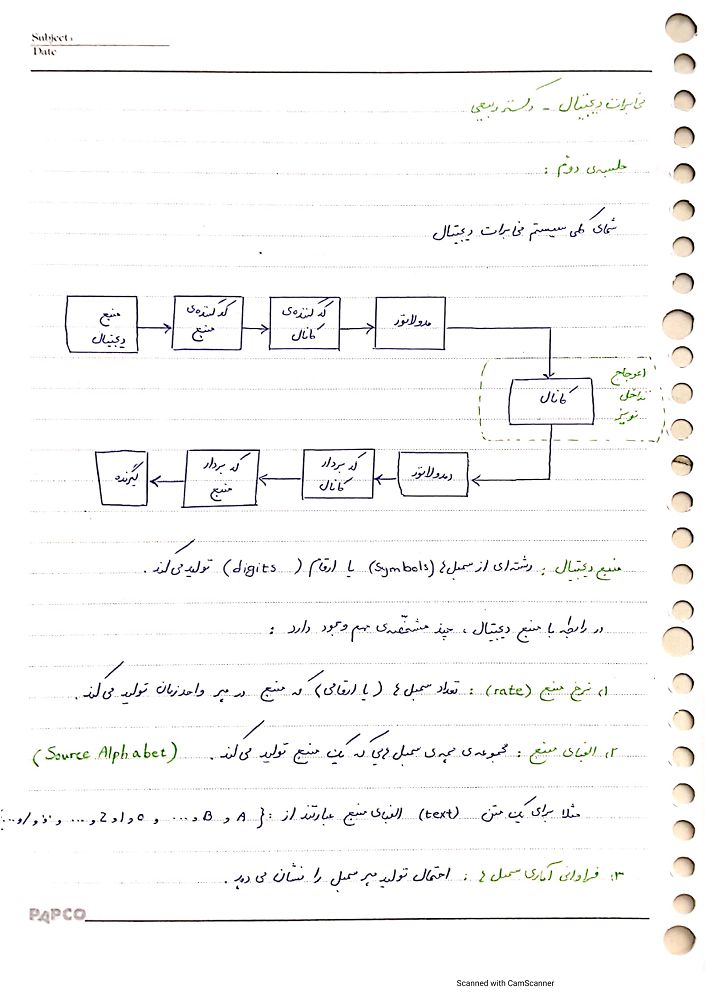 Subject:
Date
مخابرات دیجیتال - دکتر ربیعی
جلسه‌ی دوم :
شمای کلی سیستم مخابرات دیجیتال
منبع دیجیتال
کد کننده‌ی منبع
کد کننده‌ی کانال
مدولاتور
کانال
اعوجاج
تداخل
نویز
دمدولاتور
کد بردار کانال
کد بردار منبع
گیرنده
منبع دیجیتال : رشته‌ای از سمبل‌ها (symbols) یا ارقام (digits) تولید می‌کند.
در رابطه با منبع دیجیتال ، چند مشخصّه‌ی مهم وجود دارد :
۱، نرخ منبع (rate) : تعداد سمبل‌ها (یا ارقامی) که منبع در هر واحد زمان تولید می‌کند.
۲، الفبای منبع : مجموعه‌ی همه‌ی سمبل‌هایی که یک منبع تولید می‌کند. (Source Alphabet)
مثلا برای یک متن (text) الفبای منبع عبارتند از : {A و B و ... و 0 و 1 و 2 و ... و
۳، فراوانی آماری سمبل‌ها : احتمال تولید هر سمبل را نشان می‌دهد.
PAPCO
Scanned with CamScanner